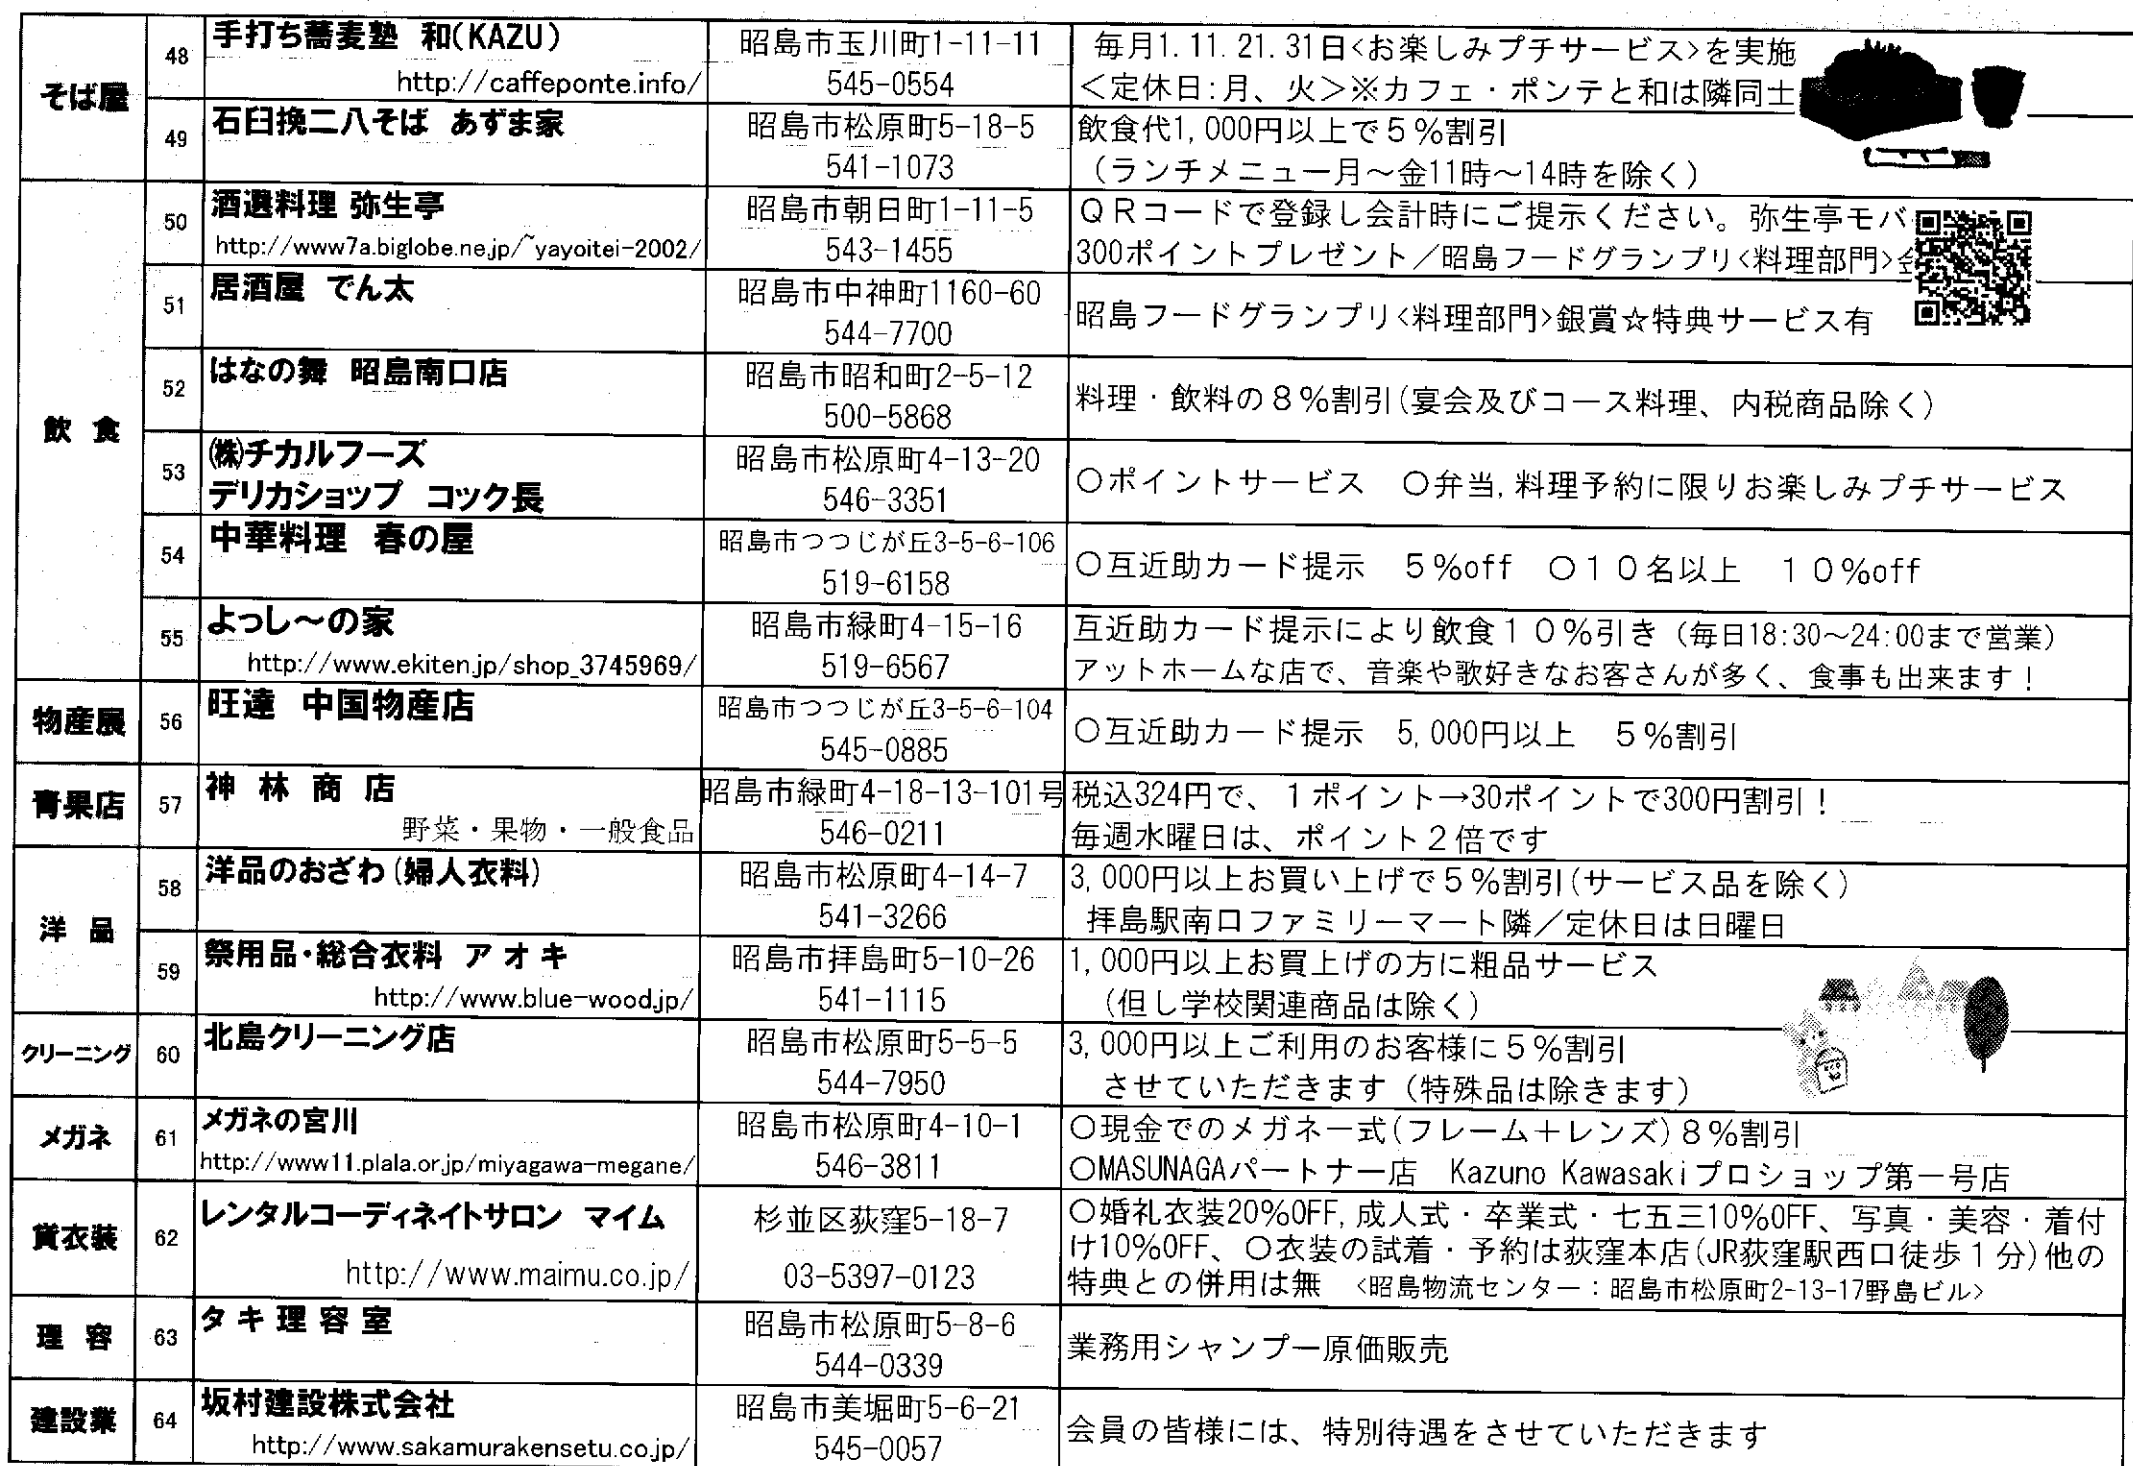 そば屋
48
手打ち蕎麦塾 和(KAZU)
http://caffeponte.info/
昭島市玉川町1-11-11
545-0554
毎月1.11.21.31日<お楽しみプチサービス>を実施
<定休日:月、火>※カフェ・ポンテと和は隣同士
49
石臼挽二八そば あずま家
昭島市松原町5-18-5
541-1073
飲食代1,000円以上で5%割引
(ランチメニュー月～金11時～14時を除く)
飲 食
50
酒選料理 弥生亭
http://www7a.biglobe.ne.jp/~yayoitei-2002/
昭島市朝日町1-11-5
543-1455
QRコードで登録し会計時にご提示ください。弥生亭モバ
300ポイントプレゼント／昭島フードグランプリ<料理部門>
51
居酒屋 でん太
昭島市中神町1160-60
544-7700
昭島フードグランプリ<料理部門>銀賞☆特典サービス有
52
はなの舞 昭島南口店
昭島市昭和町2-5-12
500-5868
料理・飲料の8%割引(宴会及びコース料理、内税商品除く)
53
㈱チカルフーズ
デリカショップ コック長
昭島市松原町4-13-20
546-3351
○ポイントサービス ○弁当,料理予約に限りお楽しみプチサービス
54
中華料理 春の屋
昭島市つつじが丘3-5-6-106
519-6158
○互近助カード提示 5%off ○10名以上 10%off
55
よっし～の家
http://www.ekiten.jp/shop_3745969/
昭島市緑町4-15-16
519-6567
互近助カード提示により飲食10%引き(毎日18:30～24:00まで営業)
アットホームな店で、音楽や歌好きなお客さんが多く、食事も出来ます!
物産展
56
旺達 中国物産店
昭島市つつじが丘3-5-6-104
545-0885
○互近助カード提示 5,000円以上 5%割引
青果店
57
神 林 商 店
野菜・果物・一般食品
昭島市緑町4-18-13-101号
546-0211
税込324円で、1ポイント→30ポイントで300円割引!
毎週水曜日は、ポイント2倍です
洋 品
58
洋品のおざわ(婦人衣料)
昭島市松原町4-14-7
541-3266
3,000円以上お買い上げで5%割引(サービス品を除く)
拝島駅南口ファミリーマート隣／定休日は日曜日
59
祭用品・総合衣料 ア オ キ
http://www.blue-wood.jp/
昭島市拝島町5-10-26
541-1115
1,000円以上お買上げの方に粗品サービス
(但し学校関連商品は除く)
クリーニング
60
北島クリーニング店
昭島市松原町5-5-5
544-7950
3,000円以上ご利用のお客様に5%割引
させていただきます(特殊品は除きます)
メガネ
61
メガネの宮川
http://www11.plala.or.jp/miyagawa-megane/
昭島市松原町4-10-1
546-3811
○現金でのメガネ一式(フレーム+レンズ)8%割引
○MASUNAGAパートナー店 Kazuno Kawasakiプロショップ第一号店
貸衣装
62
レンタルコーディネイトサロン マイム
http://www.maimu.co.jp/
杉並区荻窪5-18-7
03-5397-0123
○婚礼衣装20%OFF,成人式・卒業式・七五三10%OFF、写真・美容・着付
け10%OFF、○衣装の試着・予約は荻窪本店(JR荻窪駅西口徒歩1分)他の
特典との併用は無 <昭島物流センター：昭島市松原町2-13-17野島ビル>
理 容
63
タ キ 理 容 室
昭島市松原町5-8-6
544-0339
業務用シャンプー原価販売
建設業
64
坂村建設株式会社
http://www.sakamurakensetu.co.jp/
昭島市美堀町5-6-21
545-0057
会員の皆様には、特別待遇をさせていただきます